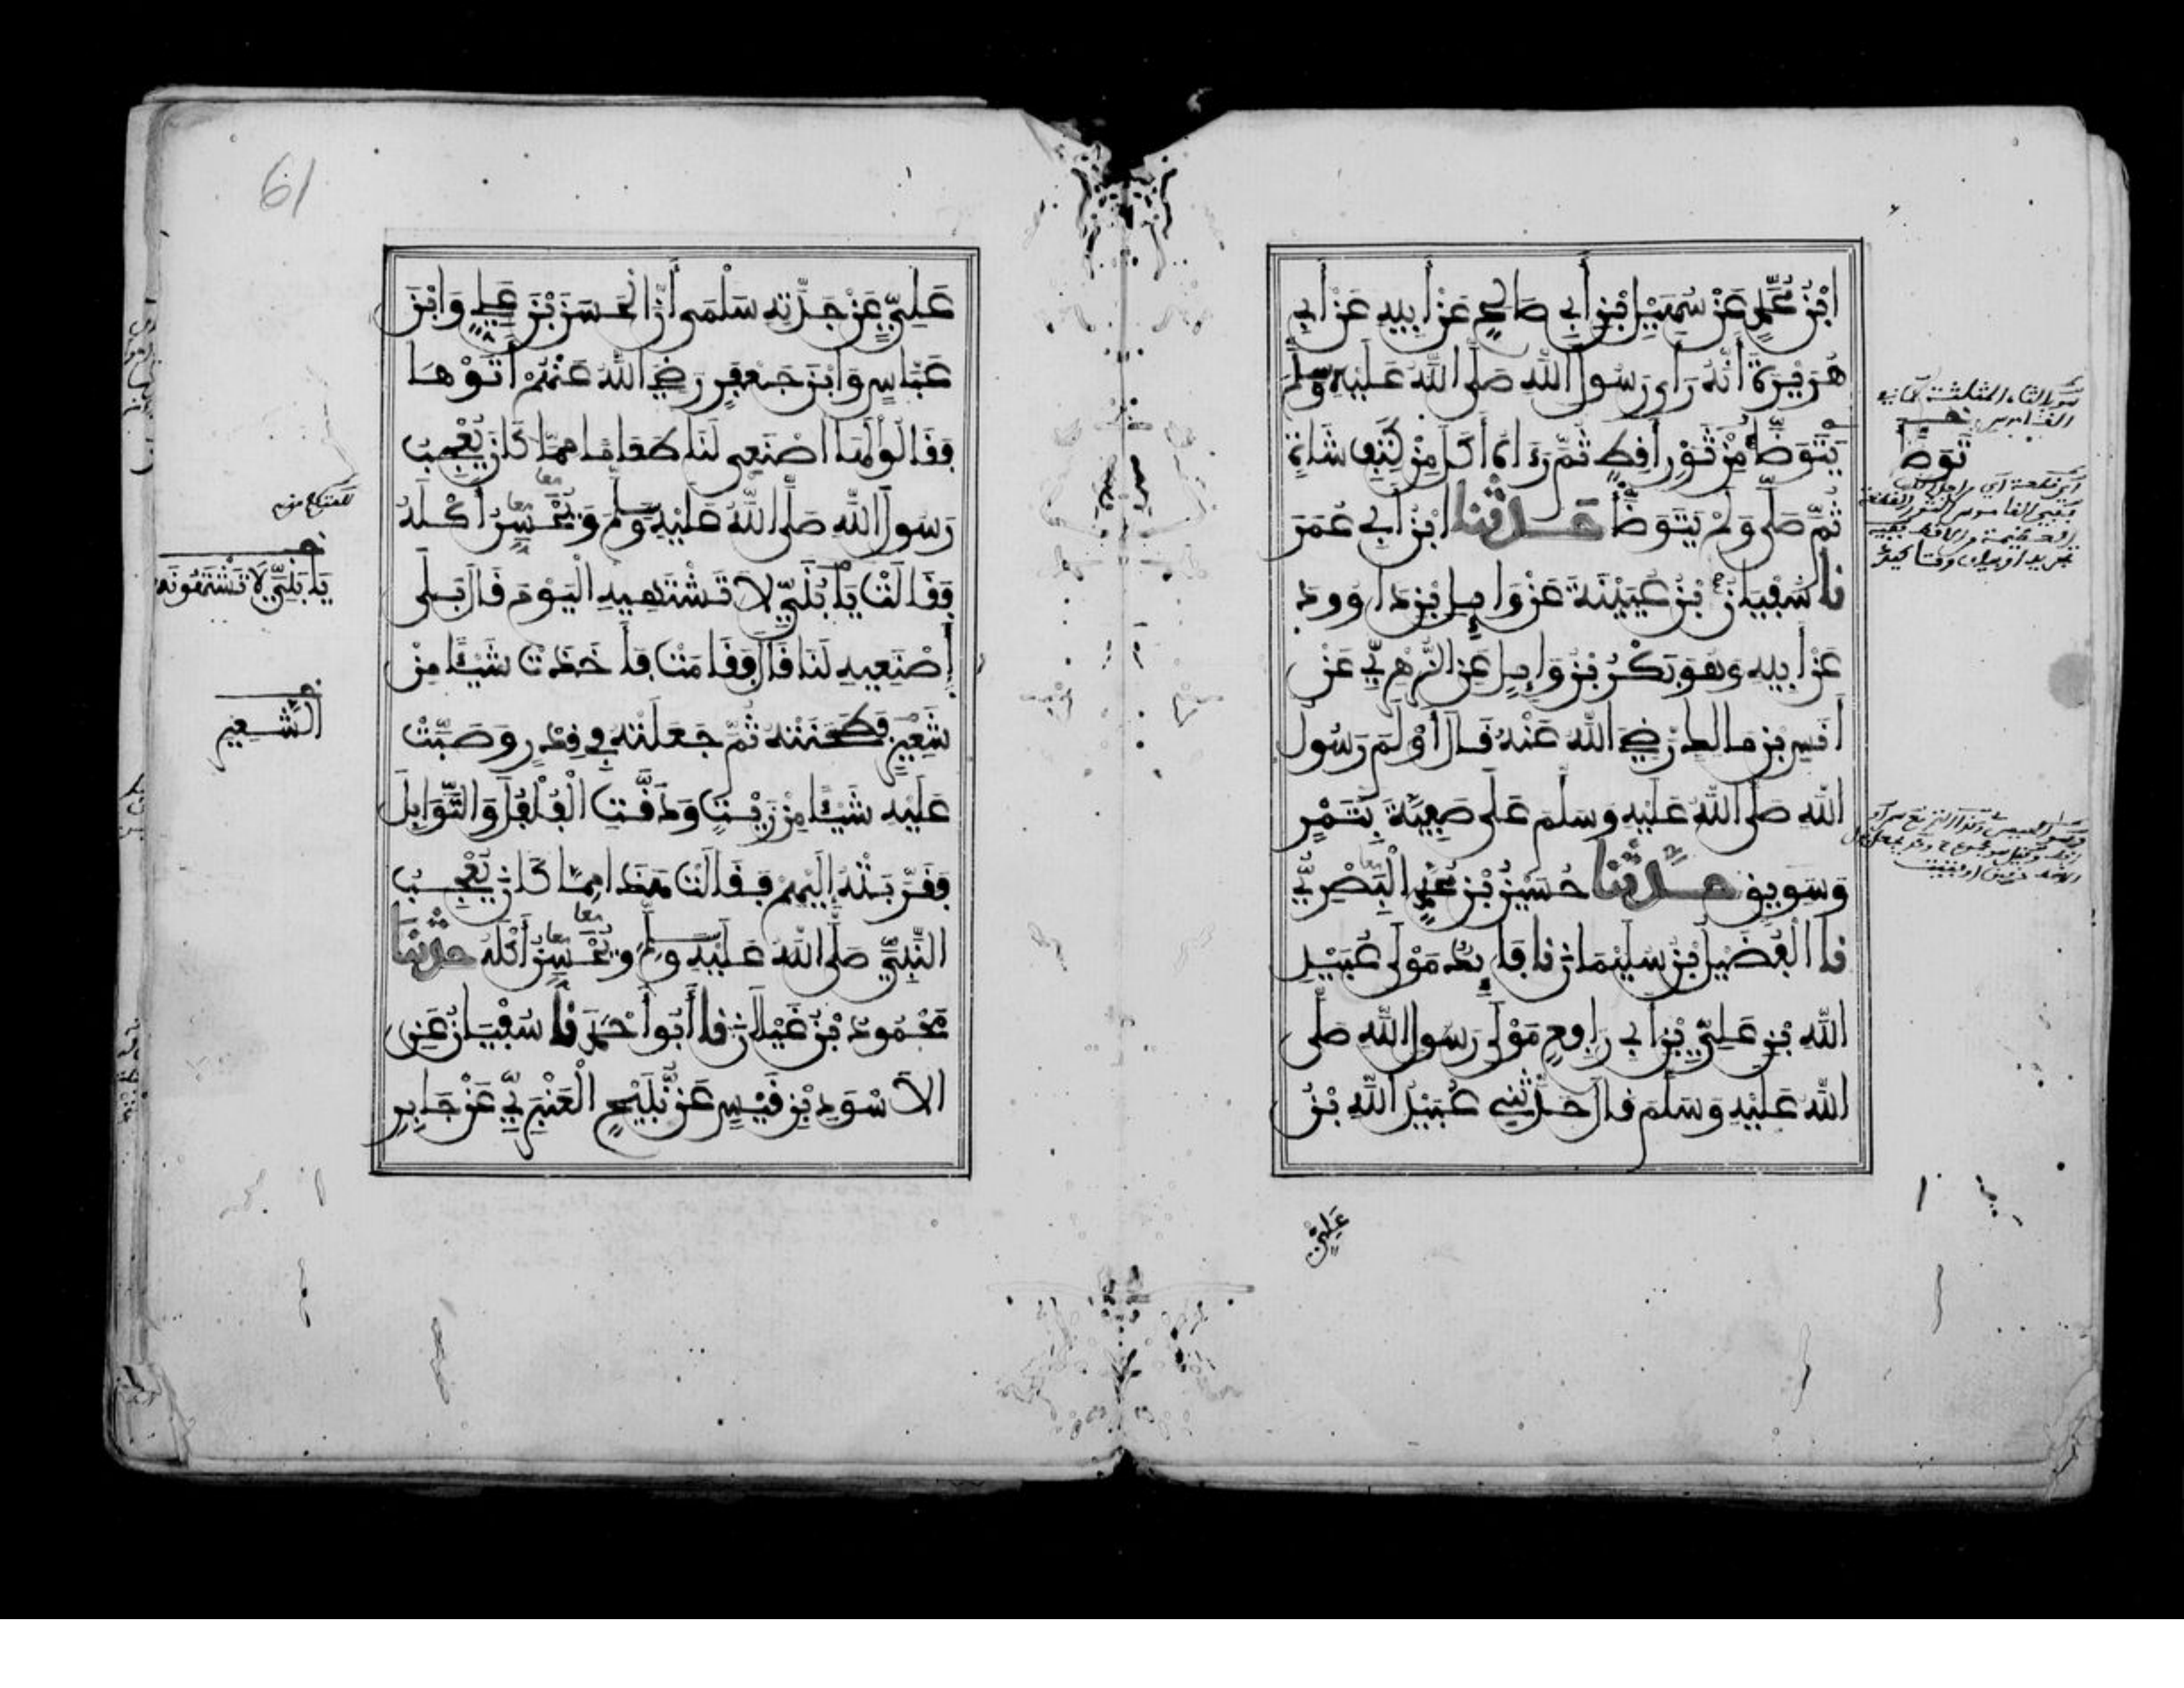 ابْنُ مُحَمَّدٍ عَنْ سُهَيْلِ ابْنِ أَبِي صَالِحٍ عَنْ أَبِيهِ عَنْ أَبِي
هُرَيْرَةَ أَنَّهُ رَأَى رَسُولَ اللَّهِ صَلَّى اللَّهُ عَلَيْهِ وَسَلَّمَ
يَتَوَضَّأُ مِنْ ثَوْرِ أَقِطٍ ثُمَّ رَءَاهُ أَكَلَ مِنْ كَتِفِ شَاةٍ
ثُمَّ صَلَّى وَلَمْ يَتَوَضَّأْ حَدَّثَنَا ابْنُ أَبِي عُمَرَ
نا سُفْيَانُ بْنُ عُيَيْنَةَ عَنْ وَائِلِ بْنِ دَاوُودَ
عَنْ أَبِيهِ وَهُوَ بَكْرُ بْنُ وَائِلٍ عَنِ الزُّهْرِيِّ عَنْ
أَنَسِ بْنِ مَالِكٍ رَضِيَ اللَّهُ عَنْهُ قَالَ أَوْلَمَ رَسُولُ
اللَّهِ صَلَّى اللَّهُ عَلَيْهِ وَسَلَّمَ عَلَى صَفِيَّةَ بِتَمْرٍ
وَسَوِيقٍ حَدَّثَنَا حُسَيْنُ بْنُ مُحَمَّدٍ الْبَصْرِيُّ
نا الْفُضَيْلُ بْنُ سُلَيْمَانَ نا فَائِدٌ مَوْلَى عُبَيْدِ
اللَّهِ بْنِ عَلِيِّ بْنِ أَبِي رَافِعٍ مَوْلَى رَسُولِ اللَّهِ صَلَّى
اللَّهُ عَلَيْهِ وَسَلَّمَ قَالَ حَدَّثَنِي عُبَيْدُ اللَّهِ بْنُ
عَلِيٍّ
تَوَضَّأَ
61
عَلِيٍّ عَنْ جَدَّتِهِ سَلْمَى أَنَّ الْحَسَنَ بْنَ عَلِيٍّ وَابْنَ
عَبَّاسٍ وَابْنَ جَعْفَرٍ رَضِيَ اللَّهُ عَنْهُمْ أَتَوْهَا
فَقَالُوا لَهَا اصْنَعِي لَنَا طَعَامًا مِمَّا كَانَ يُعْجِبُ
رَسُولَ اللَّهِ صَلَّى اللَّهُ عَلَيْهِ وَسَلَّمَ وَيُحَسِّنُ أَكْلَهُ
فَقَالَتْ يَا بُنَيَّ لَا تَشْتَهِيهِ الْيَوْمَ قَالَ بَلَى
اصْنَعِيهِ لَنَا قَالَ فَقَامَتْ فَأَخَذَتْ شَيْئًا مِنْ
شَعِيرٍ فَطَحَنَتْهُ ثُمَّ جَعَلَتْهُ فِي قِدْرٍ وَصَبَّتْ
عَلَيْهِ شَيْئًا مِنْ زَيْتٍ وَدَقَّتِ الْفُلْفُلَ وَالتَّوَابِلَ
فَقَرَّبَتْهُ إِلَيْهِمْ فَقَالَتْ هَذَا مِمَّا كَانَ يُعْجِبُ
النَّبِيَّ صَلَّى اللَّهُ عَلَيْهِ وَسَلَّمَ وَيُحَسِّنُ أَكْلَهُ حَدَّثَنَا
مَحْمُودُ بْنُ غَيْلَانَ نا أَبُو أَحْمَدَ نا سُفْيَانُ عَنِ
الْأَسْوَدِ بْنِ قَيْسٍ عَنْ نُبَيْحٍ الْعَنْبَرِيِّ عَنْ جَابِرِ
يَا بَنِيَّ لَا تَشْتَهُونَهُ
الشَّعِيرِ